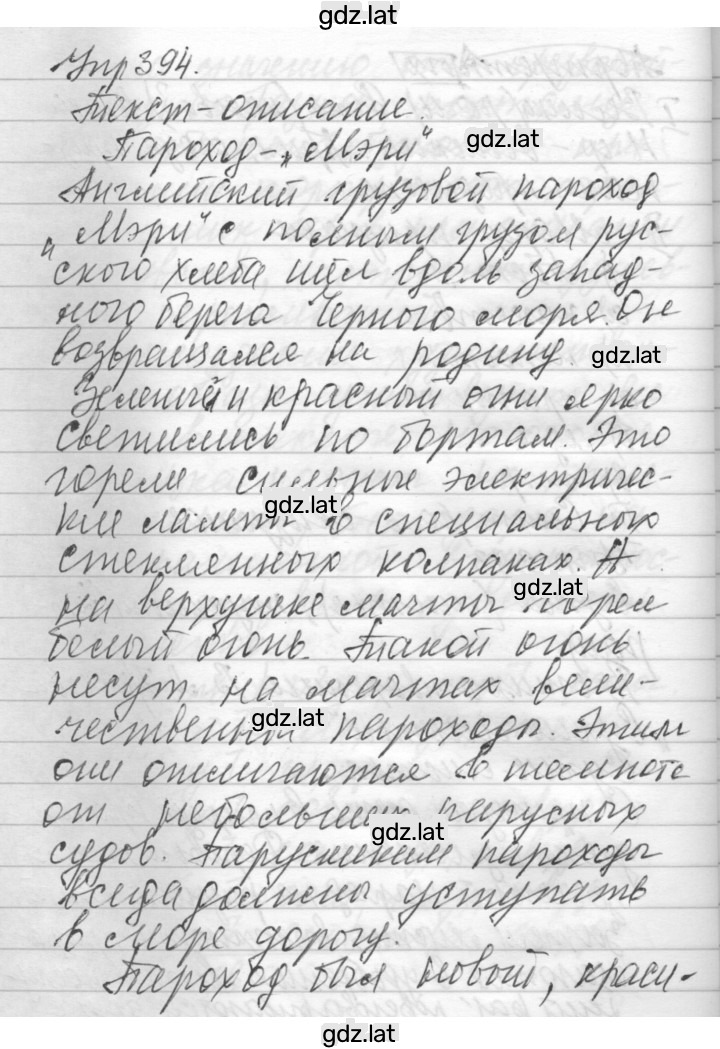 gdz.lat
Упр 394.
Текст-описание.
Пароход-„Мэри"
gdz.lat
Английский грузовой пароход
„Мэри" с полным грузом рус-
ского хлеба шёл вдоль запад-
ного берега Чёрного моря. Он
возвращался на родину.
gdz.lat
Зеленый и красный огни ярко
светились по бортам. Это
горели сильные электричес-
gdz.lat
кие лампы в специальных
стеклянных колпаках. А
gdz.lat
на верхушке мачты горел
белый огонь. Такой огонь
несут на мачтах вели-
gdz.lat
чественной пароходы. Этим
они отличаются в темноте
от небольших парусных
gdz.lat
судов. Парусникам пароходы
всегда должны уступать
в море дорогу.
Пароход был новый, краси-
gdz.lat